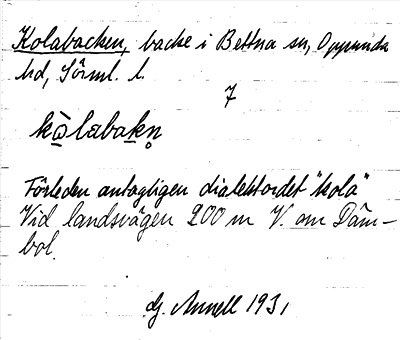 Kolabacken, backe i Bettna sn, Oppunda
hd, Sörml. l.
7
kɷ̀labakn̥
Förleden antagligen dialektordet "kola"
Vid landsvägen 200 m V. om Däm-
bol.
G. Annell 1931